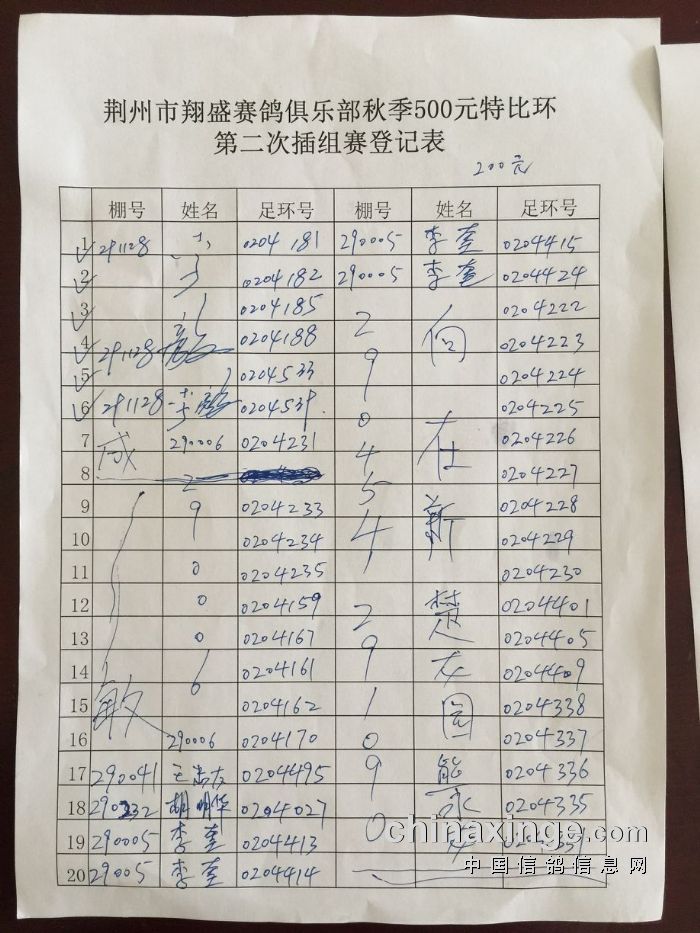 荆州市翔盛赛鸽俱乐部秋季500元特比环
第二次插组赛登记表
200元
棚号 姓名 足环号 棚号 姓名 足环号
1 291128 0204181 290005 李奎 0204415
2 0204182 290005 李奎 0204424
3 0204185 0204222
4 291128 0204188 2 向 0204223
5 0204533 9 0204224
6 291128 李 0204539 0 0204225
7 成 290006 0204231 4 在 0204226
8 2 5 0204227
9 9 0204233 4 新 0204228
10 0204234 0204229
11 0 0204235 0204230
12 0 0204159 2 楚 0204401
13 0 0204167 9 0204405
14 6 0204161 1 龙 0204409
15 敏 0204162 园 0204338
16 290006 0204170 0 0204337
17 290041 0204495 9 能 0204336
18 290232 胡明华 0204027 永 0204335
19 290005 李奎 0204413 0
20 29005 李奎 0204414
chinaxinge.com
中国信鸽信息网